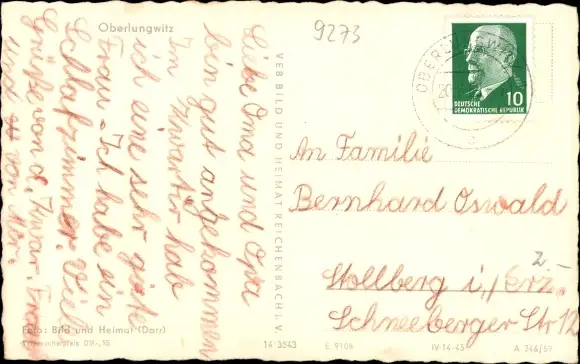 Oberlungwitz
9273
Liebe Oma und Opa
bin gut angekommen
Im Quartier hab
ich eine sehr gute
Frau. Ich habe ein
Schlafzimmer. Viele
Grüße von d. Frau
und von
VEB BILD UND HEIMAT REICHENBACH i. V.
OBERLUNGWITZ
20
DEUTSCHE
DEMOKRATISCHE REPUBLIK
10
An Familie
Bernhard Oswald
Stollberg i./Erz.
Schneeberger Str 12
2.-
Foto: Bild und Heimat (Darr)
Verbraucherpreis DM -,15
14 3543
E 9106
IV-14-45
A 246/59